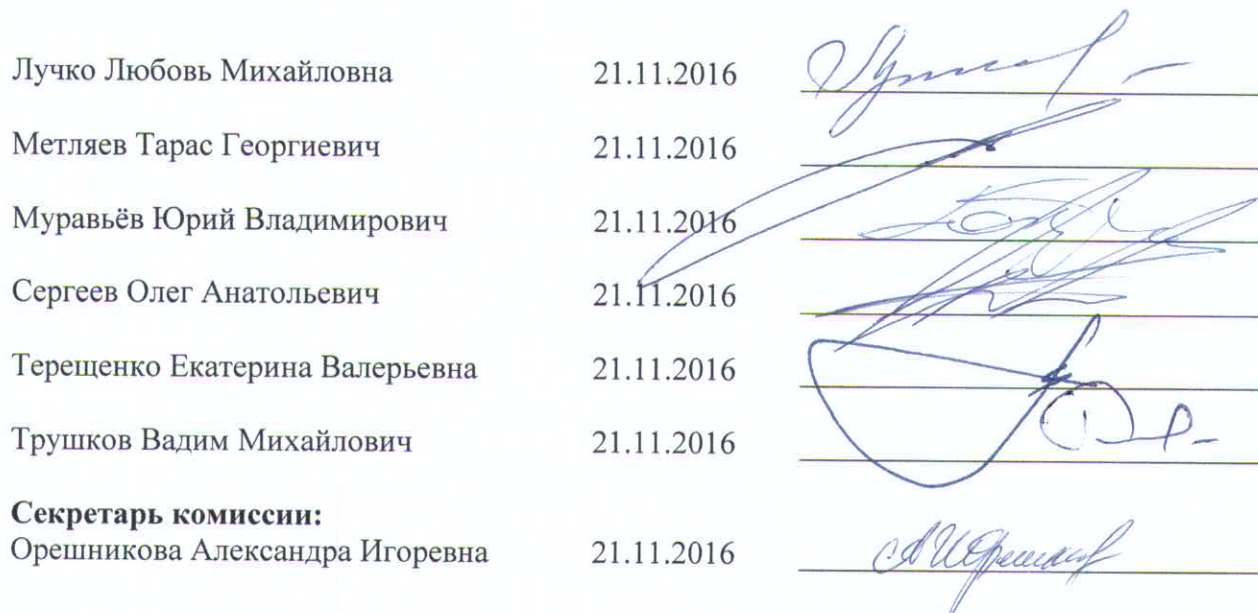 Лучко Любовь Михайловна 21.11.2016
Метляев Тарас Георгиевич 21.11.2016
Муравьёв Юрий Владимирович 21.11.2016
Сергеев Олег Анатольевич 21.11.2016
Терещенко Екатерина Валерьевна 21.11.2016
Трушков Вадим Михайлович 21.11.2016
Секретарь комиссии:
Орешникова Александра Игоревна 21.11.2016